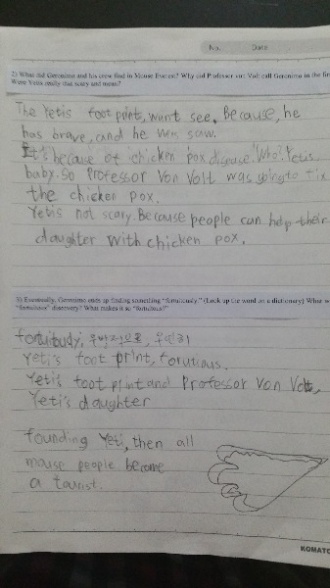 No. Date
2) What did Geronimo and his crew find in Mouse Everest? Why did Professor von Volt call Geronimo in the first
Were Yetis really that scary and mean?
The Yetis foot print, want see. Because, he
has brave, and he saw.
It's because of chicken pox disgrace. Who? Yetis
baby. So Professor Von Volt was going to fix
the chicken pox.
Yetis not scary. Because people can help their
daughter with chicken pox.
3) Eventually, Geronimo ends up finding something "fortuitously." (Look up the word in a dictionary) What w
"fortuitous" discovery? What makes it so "fortuitous?"
우발적으로, 우연히
Yeti's foot print,
Yeti's foot print and Professor Von Volt,
Yeti's daughter
founding Yeti, then all
mouse people become
a tourist.
KOMATO